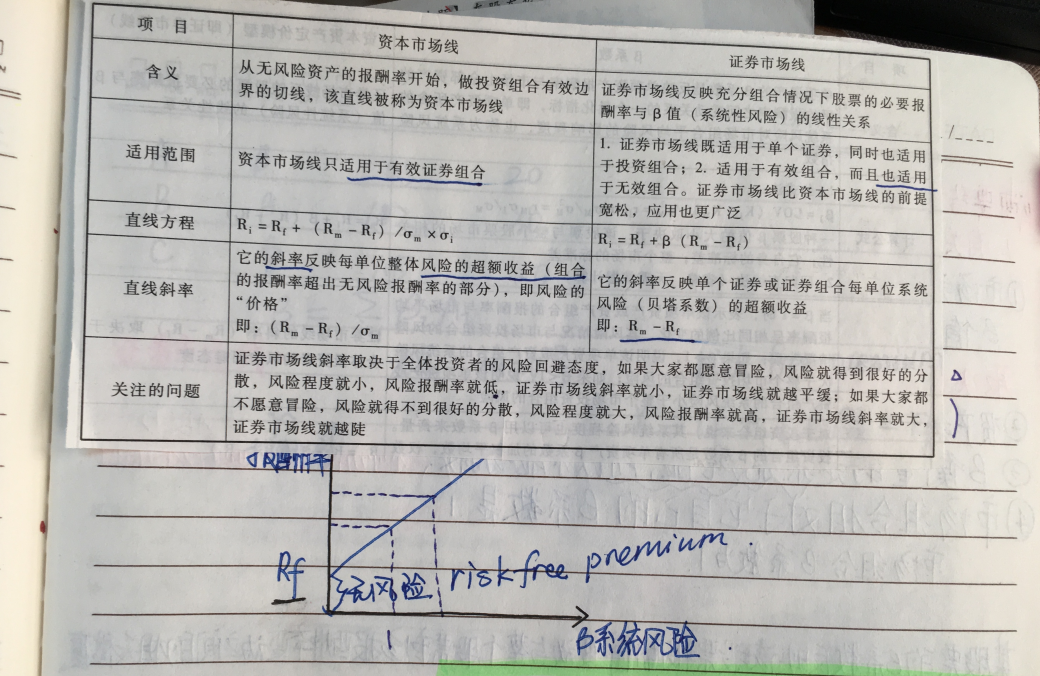 项 目
资本市场线
证券市场线
含义
从无风险资产的报酬率开始，做投资组合有效边
界的切线，该直线被称为资本市场线
证券市场线反映充分组合情况下股票的必要报
酬率与β值（系统性风险）的线性关系
适用范围
资本市场线只适用于有效证券组合
1. 证券市场线既适用于单个证券，同时也适用
于投资组合；2. 适用于有效组合，而且也适用
于无效组合。证券市场线比资本市场线的前提
宽松，应用也更广泛
直线方程
Ri=Rf+（Rm－Rf）/σm×σi
Ri=Rf+β（Rm－Rf）
直线斜率
它的斜率反映每单位整体风险的超额收益（组合
的报酬率超出无风险报酬率的部分），即风险的
“价格”
即：（Rm－Rf）/σm
它的斜率反映单个证券或证券组合每单位系统
风险（贝塔系数）的超额收益
即：Rm－Rf
关注的问题
证券市场线斜率取决于全体投资者的风险回避态度，如果大家都愿意冒险，风险就得到很好的分
散，风险程度就小，风险报酬率就低，证券市场线斜率就小，证券市场线就越平缓；如果大家都
不愿意冒险，风险就得不到很好的分散，风险程度就大，风险报酬率就高，证券市场线斜率就大，
证券市场线就越陡
Rf
无风险 risk-free premium
1
β系统风险